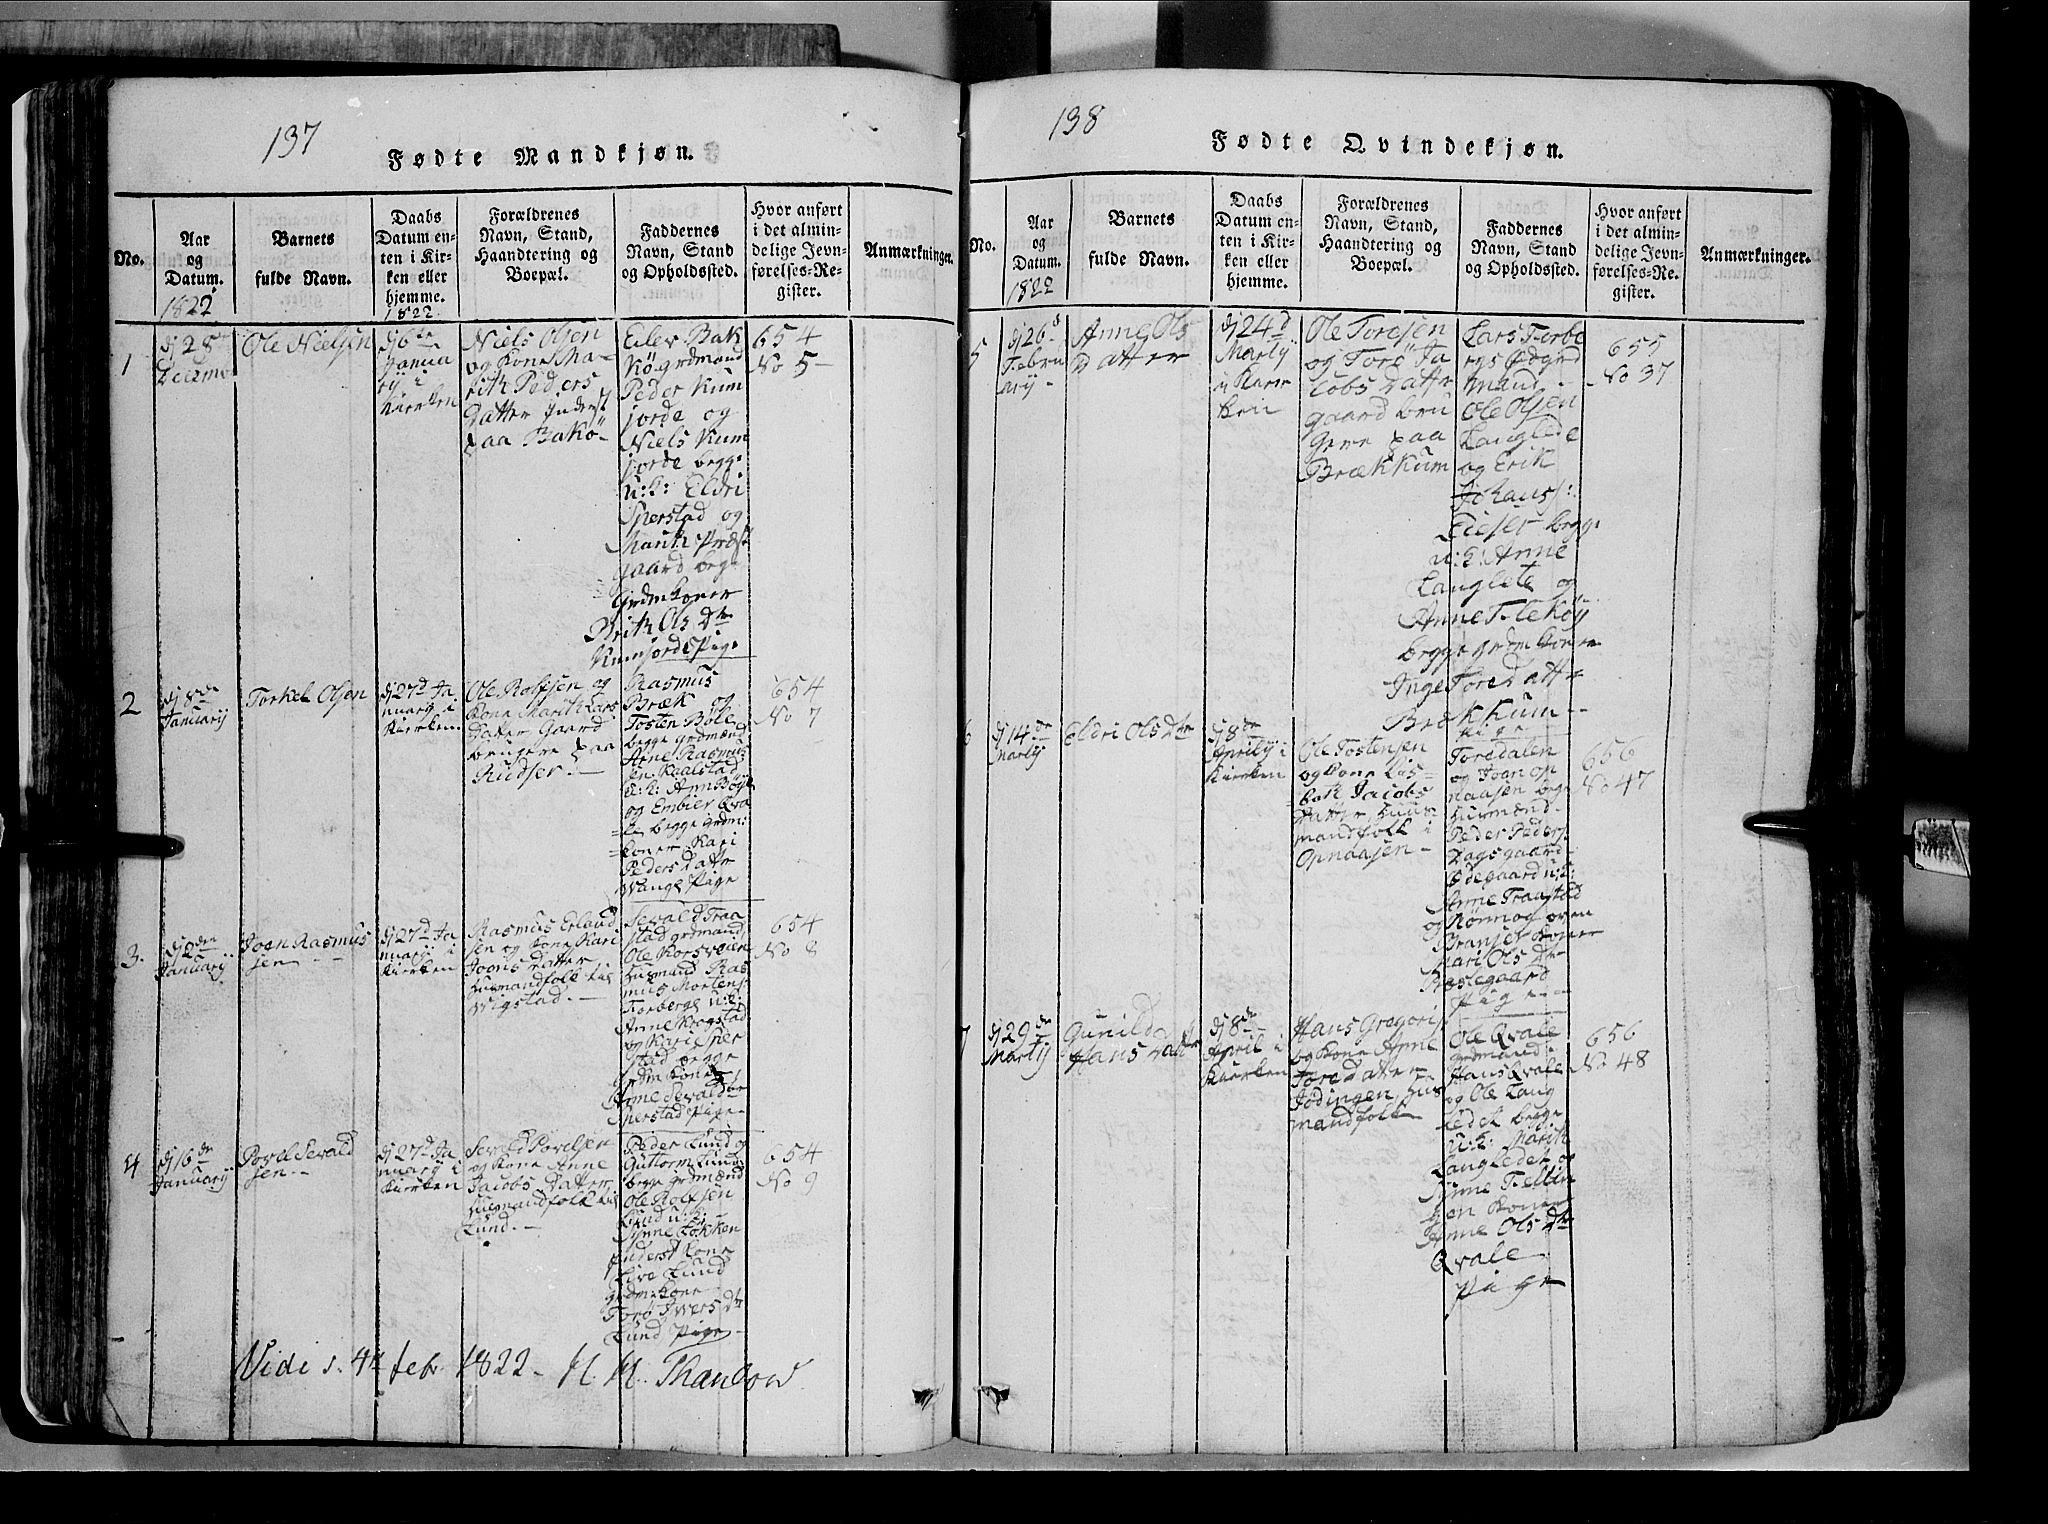 137
Fødte Mandkjøn.
No.
Aar
og
Datum.
1822
Barnets
fulde Navn.
Daabs
Datum en-
ten i Kir-
ken eller
hjemme.
1822
Forældrenes
Navn, Stand,
Haandtering og
Boepæl.
Faddernes
Navn, Stand
og Opholdssted.
Hvor anført
i det almin-
delige Jevn-
førelses-Re-
gister.
Anmærkninger.
1
dj 28
Decemb
Ole Nielsen
dj 6te
Janua
rij i
Kierken
Niels Olsen
og Kone Ma-
rith Peders
Datter Inderst
paa Bakö-
Eilev Bak
Kö grdmand
Peder Kum
jorde og
Niels Kum
jorde begge
u:k: Eldri
Sperstad og
Marith Præst
gaard beg-
Grdmkoner
Brith Ols Dtr
Kumjorde Pige
654
No 5-
2
dj 8de
Januarij
Torkel Olsen
dj 27d Ja
nuarij i
Kierken
Ole Rolfsen og
Kone Marith Lars
Dater Gaard
brugere paa
Rudser.-
Rasmus
Bræk og
Tosten Bole
begge grdmænd
Arne Rasmus
sen Kaalstad
u:k: Ann Böye
og Embier Qva
le begge grdm:
Koner Kari
Peders Dattr
Wange Pige
654
No 7
3.
dj 2den
Januarij
Joen Rasmus
sen
dj 27d Ja
nuarij i
Kierken
Rasmus Erland
sen og Kone Kari
Joens Datter
Husmandfolk til
Wigstad.-
Sevald Traa
stad grdmand
Ole Korsveien
Husmand Ras
mus Mortens
Torberge u:k:
Anne Krogstad
og Kari Sper
stad begge
grdm Koner
Anne Sevald dtr
Sperstad Pige-
654
No 8
4
dj 16de
Januarij
Povel Sevald
sen-
dj 27d Ja
nuarij i
Kierken
Sevald Povelsen
og Kone Anne
Jacobs Datter
Husmandfolk til
Lund.-
Peder Lund og
Guttorm Lund
begge grdmænd
Ole Rolfsen
Lund u:k:
Synne Løkken
Inderst Kone
Live Lund
grdm:Kone
Torö Ivers Dtr
Lund Pige-
654
No 9
Vidi d. 4d febr 1822- H. H. Thaulow
138
Fødte Qvindekjøn.
No.
Aar
og
Datum.
1822
Barnets
fulde Navn.
Daabs
Datum en-
ten i Kir-
ken eller
hjemme.
Forældrenes
Navn, Stand,
Haandtering og
Boepæl.
Faddernes
Navn, Stand
og Opholdssted.
Hvor anført
i det almin-
delige Jevn-
førelses-Re-
gister.
Anmærkninger.
5
dj 26d
Febru
arij -
Anne Ols
Datter
dj 24d
Martij
i Kier
ken
Ole Toresen
og Torö Ja
cobs Dattr
gaard bru
gere paa
Brækkum
Lars Torbe
rgs Ødgrd
mand
Ole Olsen
Langlede
og Erik
Johanss:
begge
u:k: Anne
Langlete og
Anne Tilekøy
begge grdm koner
Inge Toredattr
Brækkum-
Pige
655
No 37
6
dj 14de
Martij
Eldri Ols Dtr
dj 8de
Aprilij i
Kierken
Ole Tostensen
og Kone Lis-
beth Jacobs
Datter huus
mandfolk i
Opnaasen-
Toredalen
og Joan Op
naasen begge
Husmænd.
Peder Peders
Dagsgaard-
Ødegaard u:k:
Anne Traastad
og Rønnog oven
Koner
Mari Ols Dtr
Pige-
656
No 47
7
dj 29de
Martij
Gunild
Hans Datr
dj 8de
April i
Kierken
Hans Gregoris
og Kone Anne
Tore Datter
Jödingen Hus
mandfolk
Ole Qvale
grdmand.
Hans Qvale
og Ole Lang
ledet begge
u:k: Marith
Langledet og
Synne Tellin
gen Koner
Anne Ols Dtr
Qvale
Pige
656
No 48